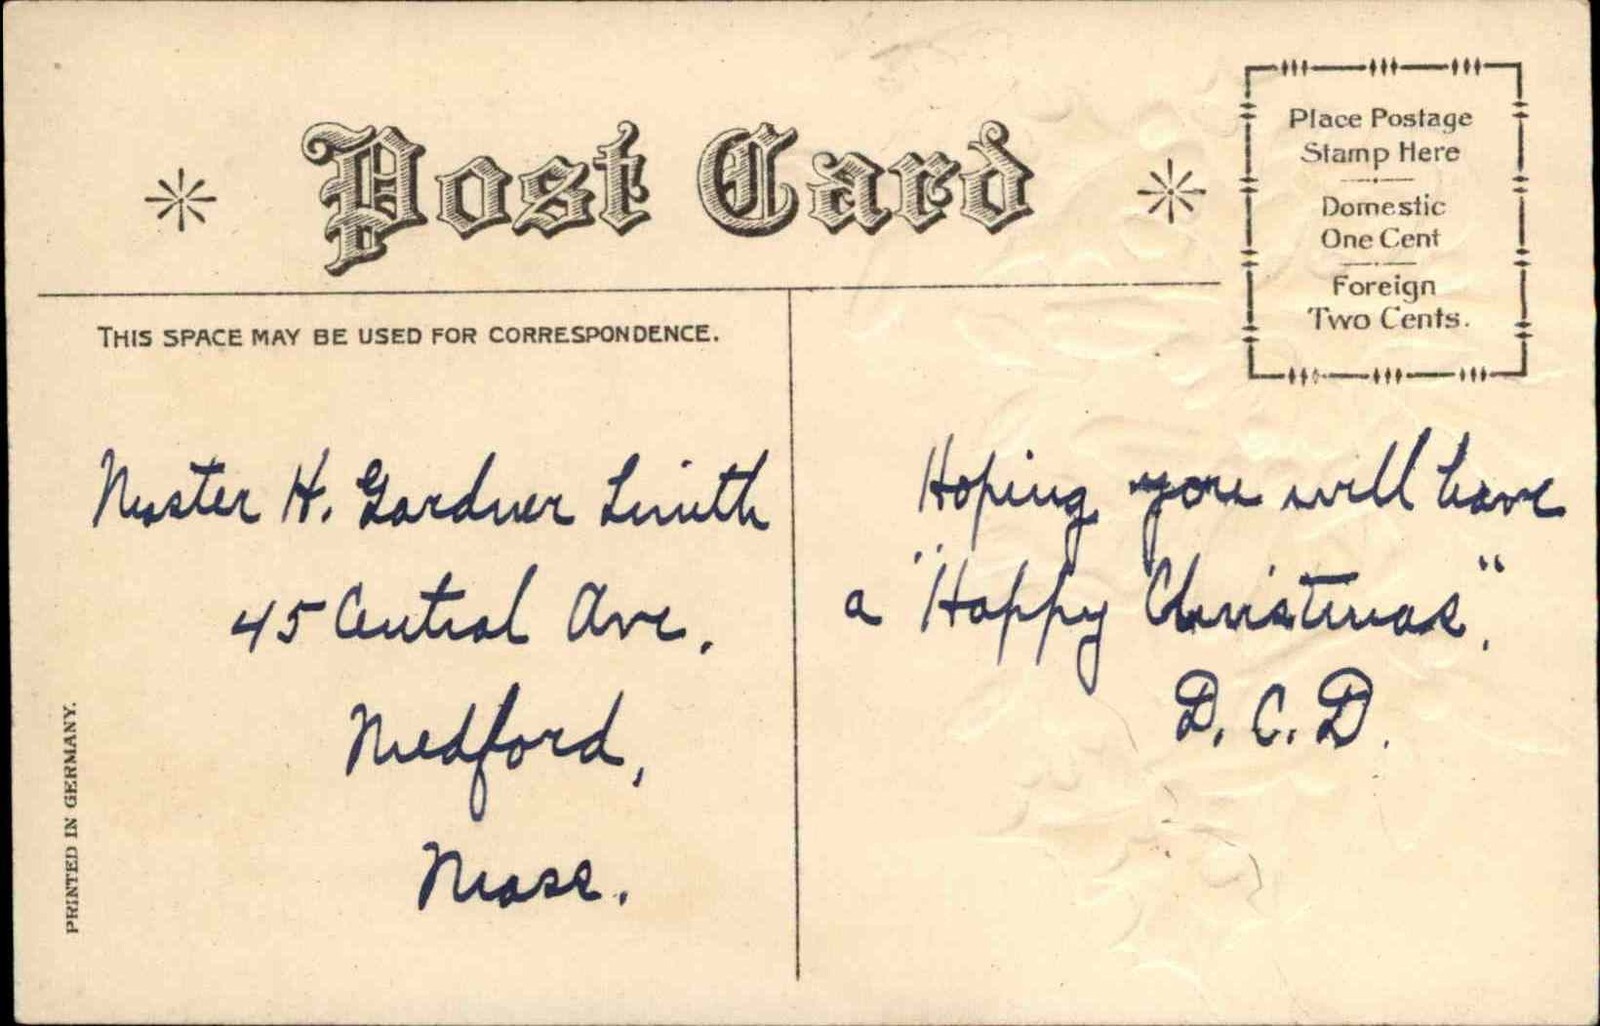 Post Card
Place Postage
Stamp Here
Domestic
One Cent
Foreign
Two Cents.
THIS SPACE MAY BE USED FOR CORRESPONDENCE.
Master H. Gardner Smith
45 Central Ave.
Medford,
Mass.
Hoping you will have
a "Happy Christmas".
D. C. D.
PRINTED IN GERMANY.